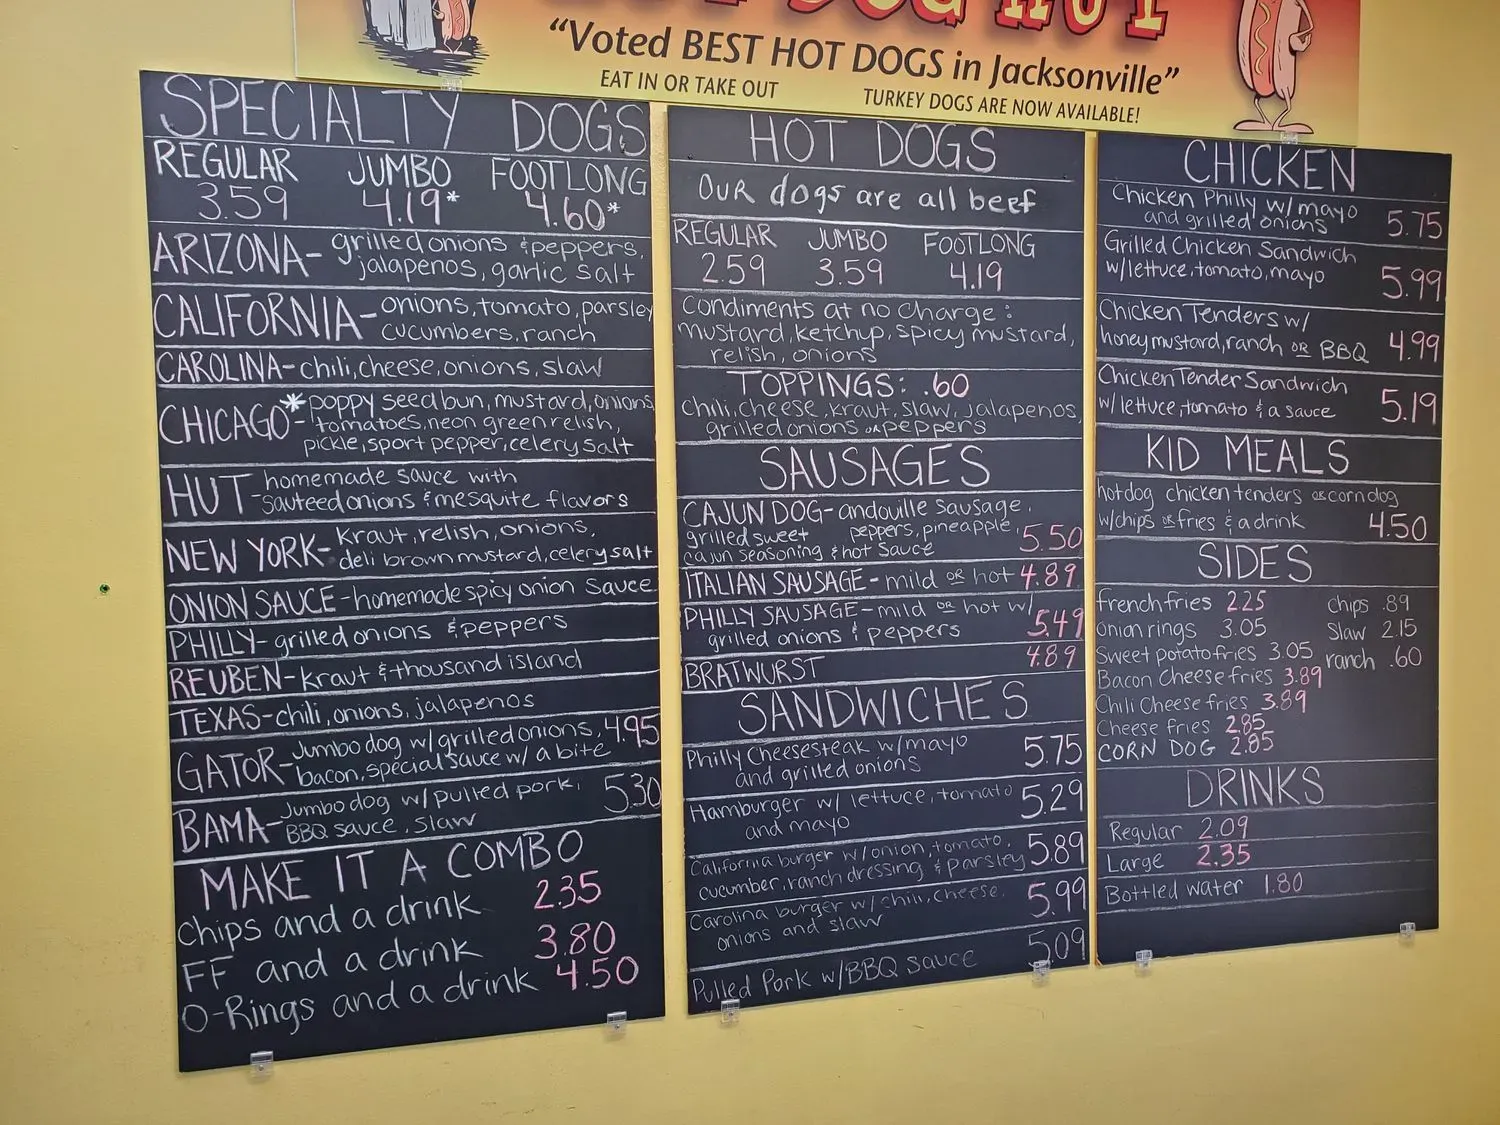 "Voted BEST HOT DOGS in Jacksonville"
EAT IN OR TAKE OUT
TURKEY DOGS ARE NOW AVAILABLE!
SPECIALTY DOGS
REGULAR JUMBO FOOTLONG
3.59 4.19* 4.60*
ARIZONA- grilled onions & peppers,
jalapenos, garlic salt
CALIFORNIA- onions, tomato, parsley
cucumbers, ranch
CAROLINA- chili, cheese, onions, slaw
CHICAGO*- poppy seed bun, mustard, onions
tomatoes, neon green relish,
pickle, sport pepper, celery salt
HUT- homemade sauce with
sauteed onions & mesquite flavors
NEW YORK- Kraut, relish, onions,
deli brown mustard, celery salt
ONION SAUCE - homemade spicy onion sauce
PHILLY- grilled onions & peppers
REUBEN- kraut & thousand island
TEXAS- chili, onions, jalapenos
GATOR- Jumbo dog w/ grilled onions, 4.95
bacon, special sauce w/ a bite
BAMA- Jumbo dog w/ pulled pork, 5.30
BBQ sauce, slaw
MAKE IT A COMBO
chips and a drink 2.35
FF and a drink 3.80
O-Rings and a drink 4.50
HOT DOGS
OUR dogs are all beef
REGULAR JUMBO FOOTLONG
2.59 3.59 4.19
Condiments at no Charge:
mustard, ketchup, spicy mustard,
relish, onions
TOPPINGS: .60
chili, cheese, kraut, slaw, jalapenos,
grilled onions or peppers
SAUSAGES
CAJUN DOG- andouille sausage,
grilled sweet peppers, pineapple,
cajun seasoning & hot sauce 5.50
ITALIAN SAUSAGE - mild OR hot 4.89
PHILLY SAUSAGE- mild OR hot w/ 5.49
grilled onions & peppers
BRATWURST 4.89
SANDWICHES
Philly Cheesesteak w/ mayo 5.75
and grilled onions
Hamburger w/ lettuce, tomato 5.29
and mayo
California burger w/ onion, tomato, 5.89
cucumber, ranch dressing & parsley
Carolina burger w/ chili, cheese, 5.99
onions and slaw
Pulled Pork w/ BBQ sauce 5.09
CHICKEN
Chicken Philly w/ mayo 5.75
and grilled onions
Grilled Chicken Sandwich
w/ lettuce, tomato, mayo 5.99
Chicken Tenders w/
honey mustard, ranch OR BBQ 4.99
Chicken Tender Sandwich
w/ lettuce, tomato & a sauce 5.19
KID MEALS
hot dog chicken tenders OR corn dog
w/ chips OR fries & a drink 4.50
SIDES
french fries 2.25 chips .89
onion rings 3.05 Slaw 2.15
Sweet potato fries 3.05 ranch .60
Bacon Cheese fries 3.89
Chili Cheese fries 3.89
Cheese fries 2.85
CORN DOG 2.85
DRINKS
Regular 2.09
Large 2.35
Bottled water 1.80